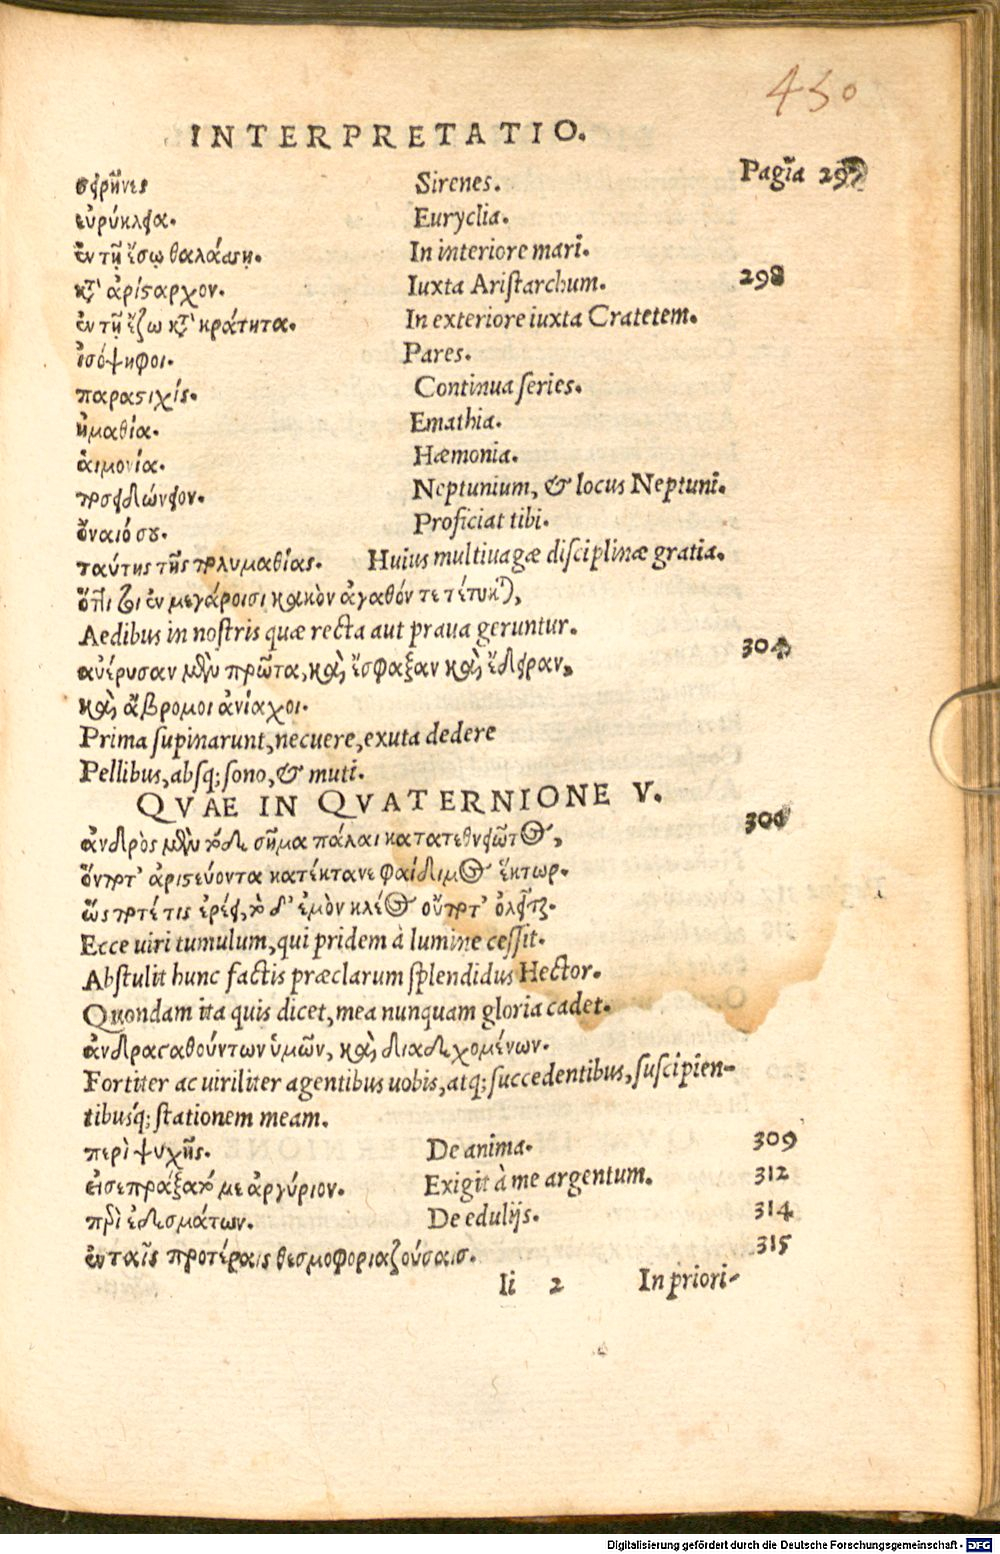 450
INTERPRETATIO.
σειρῆνες Sirenes. Pagĩa 297
εὐρύκλεια. Euryclia.
ἐν τῇ ἔσω θαλάσσῃ. In interiore mari.
κτ' ἀρίσαρχον. Iuxta Aristarchum. 298
ἐν τῇ ἔξω κτ' κράτητα. In exteriore iuxta Cratetem.
ἰσόψηφοι. Pares.
παραστιχίς. Continua series.
ἠμαθία. Emathia.
αἱμονία. Hæmonia.
ποσειδώνειον. Neptunium, & locus Neptuni.
ὄναιό σου. Proficiat tibi.
ταύτης τῆς πολυμαθίας. Huius multiuagæ disciplinæ gratia.
ὅττι τοι ἐν μεγάροισι κακὸν ἀγαθόν τε τέτυκται,
Aedibus in nostris quæ recta aut praua geruntur.
αὐέρυσαν μὲν πρῶτα, καὶ ἔσφαξαν καὶ ἔδειραν, 304
καὶ ἄβρομοι ἀνίαχοι.
Prima supinarunt, necuere, exuta dedere
Pellibus, absq; sono, & muti.
QVAE IN QVATERNIONE V.
ἀνδρὸς μὲν τόδε σῆμα πάλαι κατατεθνειῶτος, 306
ὅνποτ' ἀριστεύοντα κατέκτανε φαίδιμος ἕκτωρ.
ὥς ποτέ τις ἐρέει, τὸ δ' ἐμὸν κλέος οὔποτ' ὀλεῖται.
Ecce uiri tumulum, qui pridem à lumine cessit.
Abstulit hunc factis præclarum splendidus Hector.
Quondam ita quis dicet, mea nunquam gloria cadet.
ἀνδραγαθούντων ὑμῶν, καὶ διαδεχομένων.
Fortiter ac uiriliter agentibus uobis, atq; succedentibus, suscipien-
tibusq́; stationem meam.
περὶ ψυχῆς. De anima. 309
εἰσεπράξατό με ἀργύριον. Exigit à me argentum. 312
περὶ ἐδεσμάτων. De edulijs. 314
ἐν ταῖς προτέραις θεσμοφοριαζούσαις. 315
Ii 2 In priori-
Digitalisierung gefördert durch die Deutsche Forschungsgemeinschaft - DFG